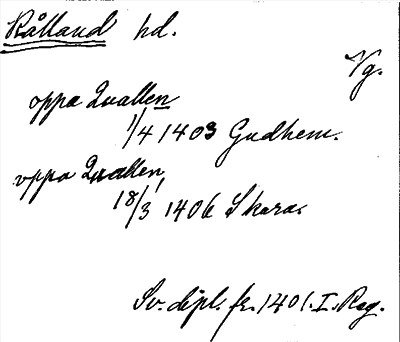 Kålland hd.
Vg.
oppa Quallen
1/4 1403 Gudhem.
oppa Quallen,
18/3 1406 Skara.
Sv. dipl. fr. 1401. I. Reg.